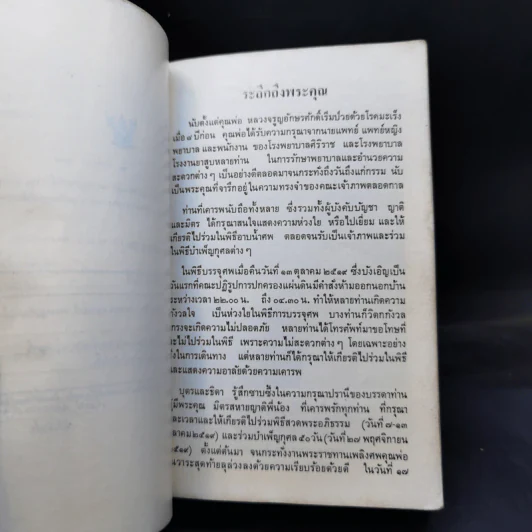 ระลึกถึงพระคุณ
นับตั้งแต่คุณพ่อ หลวงจรูญอักษรศักดิ์เริ่มป่วยด้วยโรคมะเร็ง
เมื่อ ๘ ปีก่อน คุณพ่อได้รับความกรุณาจากนายแพทย์ แพทย์หญิง
พยาบาล และพนักงาน ของโรงพยาบาลศิริราช และโรงพยาบาล
โรงงานยาสูบหลายท่าน ในการรักษาพยาบาลและอำนวยความ
สะดวกต่าง ๆ เป็นอย่างดีตลอดมาจนกระทั่งถึงวันถึงแก่กรรม นับ
เป็นพระคุณที่จารึกอยู่ในความทรงจำของคณะเจ้าภาพตลอดกาล
ท่านที่เคารพนับถือทั้งหลาย ซึ่งรวมทั้งผู้บังคับบัญชา ญาติ
และมิตร ได้กรุณาสนใจแสดงความห่วงใย หรือไปเยี่ยม และให้
เกียรติไปร่วมในพิธีอาบน้ำศพ ตลอดจนรับเป็นเจ้าภาพและร่วม
ในพิธีบำเพ็ญกุศลต่าง ๆ
ในพิธีบรรจุศพเมื่อคืนวันที่ ๑๓ ตุลาคม ๒๕๑๙ ซึ่งบังเอิญเป็น
วันแรกที่คณะปฏิรูปการปกครองแผ่นดินมีคำสั่งห้ามออกนอกบ้าน
ระหว่างเวลา ๒๒.๐๐ น. ถึง ๐๔.๓๐ น. ทำให้หลายท่านเกิดความ
กังวลใจ เป็นห่วงใยในพิธีการบรรจุศพ บางท่านก็วิตกกังวล
เกรงจะเกิดความไม่ปลอดภัย หลายท่านได้โทรศัพท์มาขอโทษที่
จะไม่ไปร่วมในพิธี เพราะความไม่สะดวกต่าง ๆ โดยเฉพาะอย่าง
ยิ่งในการเดินทาง แต่หลายท่านก็ได้กรุณาให้เกียรติไปร่วมในพิธี
และแสดงความอาลัยด้วยความเคารพ
บุตรและธิดา รู้สึกซาบซึ้งในความกรุณาปรานีของบรรดาท่าน
ผู้มีพระคุณ มิตรสหายญาติพี่น้อง ที่เคารพรักทุกท่าน ที่กรุณา
สละเวลาและให้เกียรติไปร่วมพิธีสวดพระอภิธรรม (วันที่ ๗-๑๓
ตุลาคม ๒๕๑๙) และร่วมบำเพ็ญกุศล ๕๐ วัน (วันที่ ๒๗ พฤศจิกายน
๒๕๑๙) ตั้งแต่ต้นมา จนกระทั่งงานพระราชทานเพลิงศพคุณพ่อ
ในวาระสุดท้ายลุล่วงลงด้วยความเรียบร้อยด้วยดี ในวันที่ ๑๗